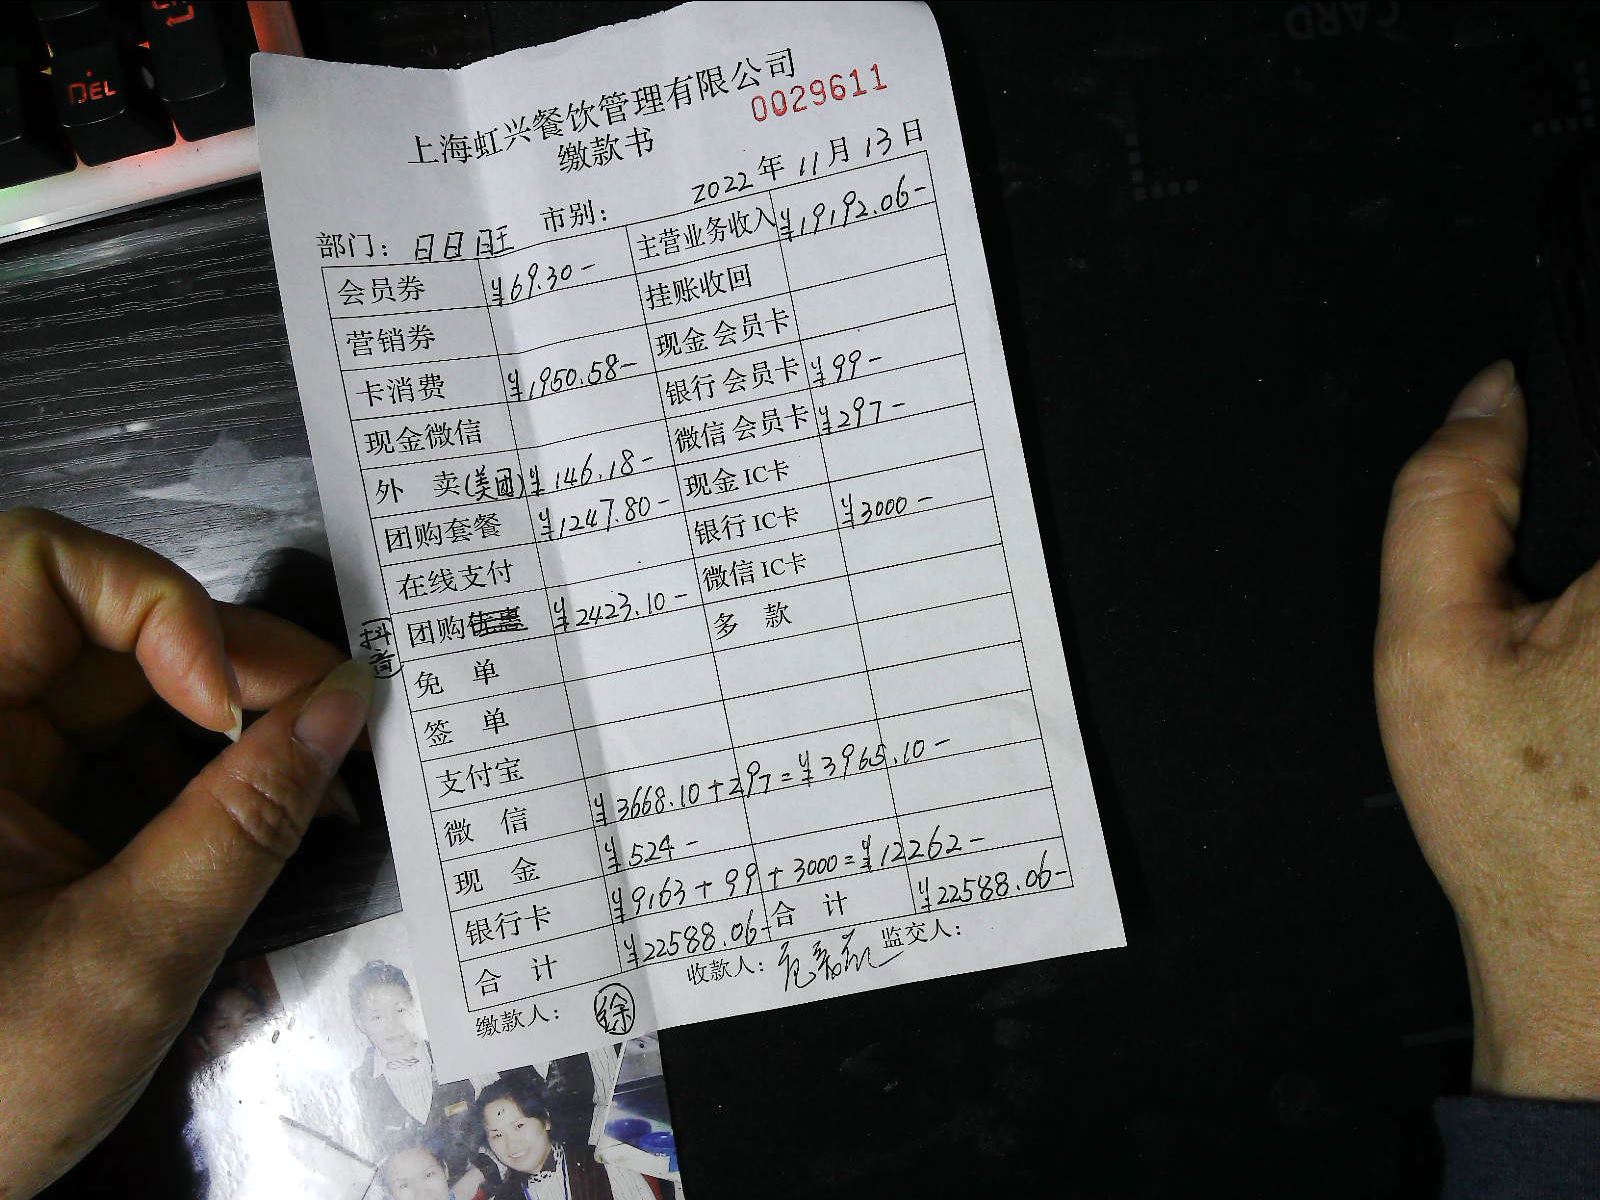 DEL
CARD
上海虹兴餐饮管理有限公司
0029611
缴款书
2022年 11月 13日
部门： 日日旺 市别：
会员券 ¥69.30- 主营业务收入 ¥19192.06-
营销券 挂账收回
卡消费 ¥1950.58- 现金会员卡
现金微信 银行会员卡 ¥99-
外 卖(美团) ¥146.18- 微信会员卡 ¥297-
团购套餐 ¥1247.80- 现金IC卡
在线支付 银行IC卡 ¥3000-
(抖音) 团购优惠 ¥2423.10- 微信IC卡
免 单 多 款
签 单
支付宝
微 信 ¥3668.10+297=¥3965.10-
现 金 ¥524-
银行卡 ¥9163+99+3000=¥12262-
合 计 ¥22588.06- 合 计 ¥22588.06-
缴款人： 徐 收款人： 监交人：